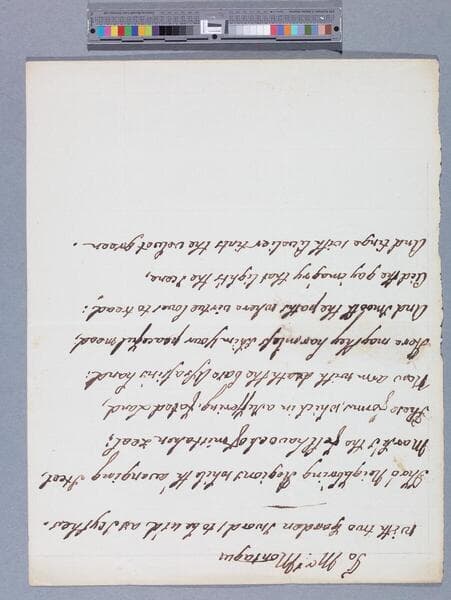 To Mrs. Montagu
with two Garden Swords to be used as Scythes.
Thro' Neighb'ring Regions while th' avenging Steel,
Marks the fell havock of mistaken Zeal;
These forms, which in a suffering, fated Land,
Now arm with death the base Assassin's hand:
Here may they harmless skim your peaceful mead,
And smooth the paths where virtue loves to tread;
Aid the gay imag'ry that lights the Scene,
And tinge with livelier tints the velvet green.